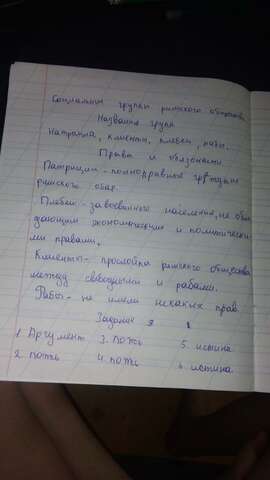 Социальные группы римского общества
Название групп
Патриции, клиенты, плебеи, рабы.
Права и обязаности
Патриции - полноправные граждане
римского общ.
Плебеи - завоеванного населения, не обла
дающим экономическими и политически
ми правами.
Клиенты - прослойка римского общества
между свободными и рабами.
Рабы - не имели некаких прав
Задание
1. Аргумент 3. ложь 5. истина
2. ложь 4. ложь 6. истина